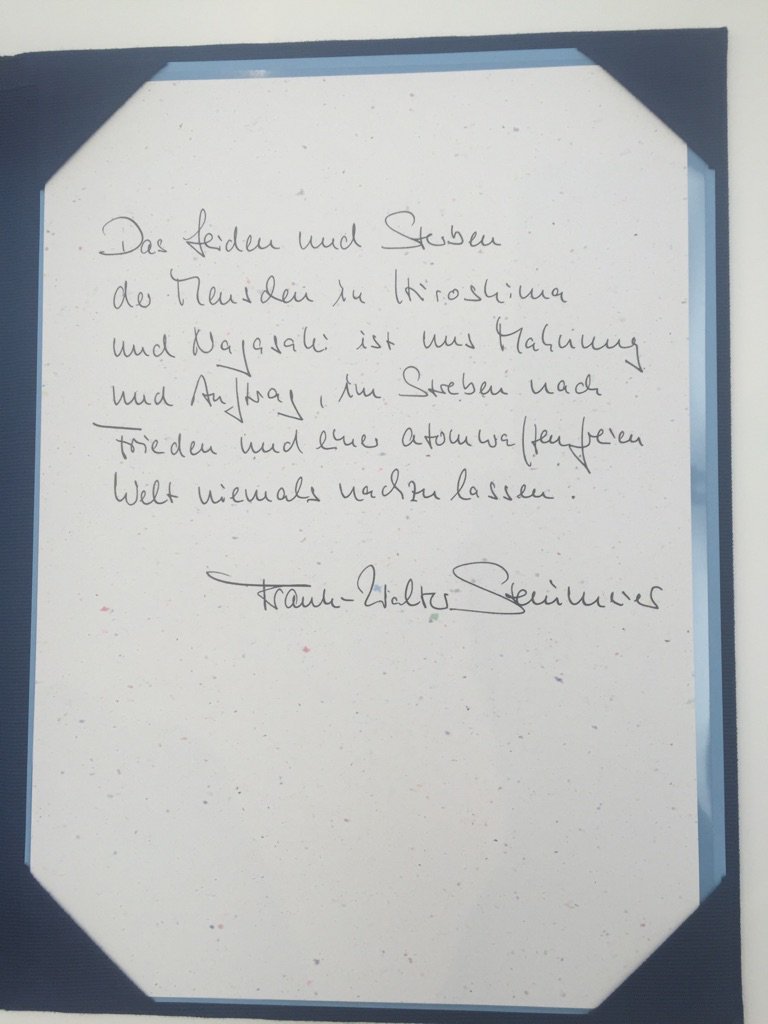 Das Leiden und Sterben
der Menschen in Hiroshima
und Nagasaki ist uns Mahnung
und Auftrag, im Streben nach
Frieden und einer atomwaffenfreien
Welt niemals nachzulassen.
Frank-Walter Steinmeier